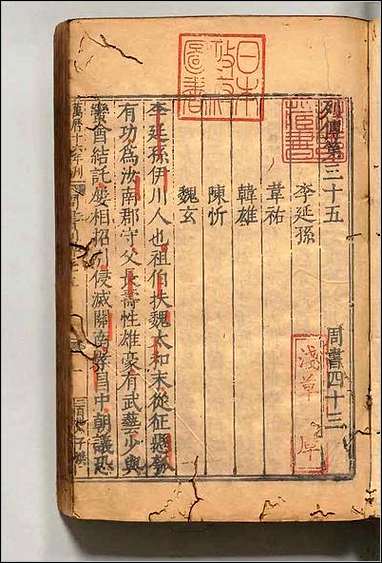 列傳第三十五 周書四十三
李延孫
韋祐
韓雄
陳忻
魏玄
李延孫伊川人也祖伯扶魏太和末從征懸瓠
有功為汝南郡守父長壽性雄豪有武藝少與
蠻酋結託屢相招引侵滅關南孝昌中朝議恐
萬曆十六年刊
日本
圖書
淺草